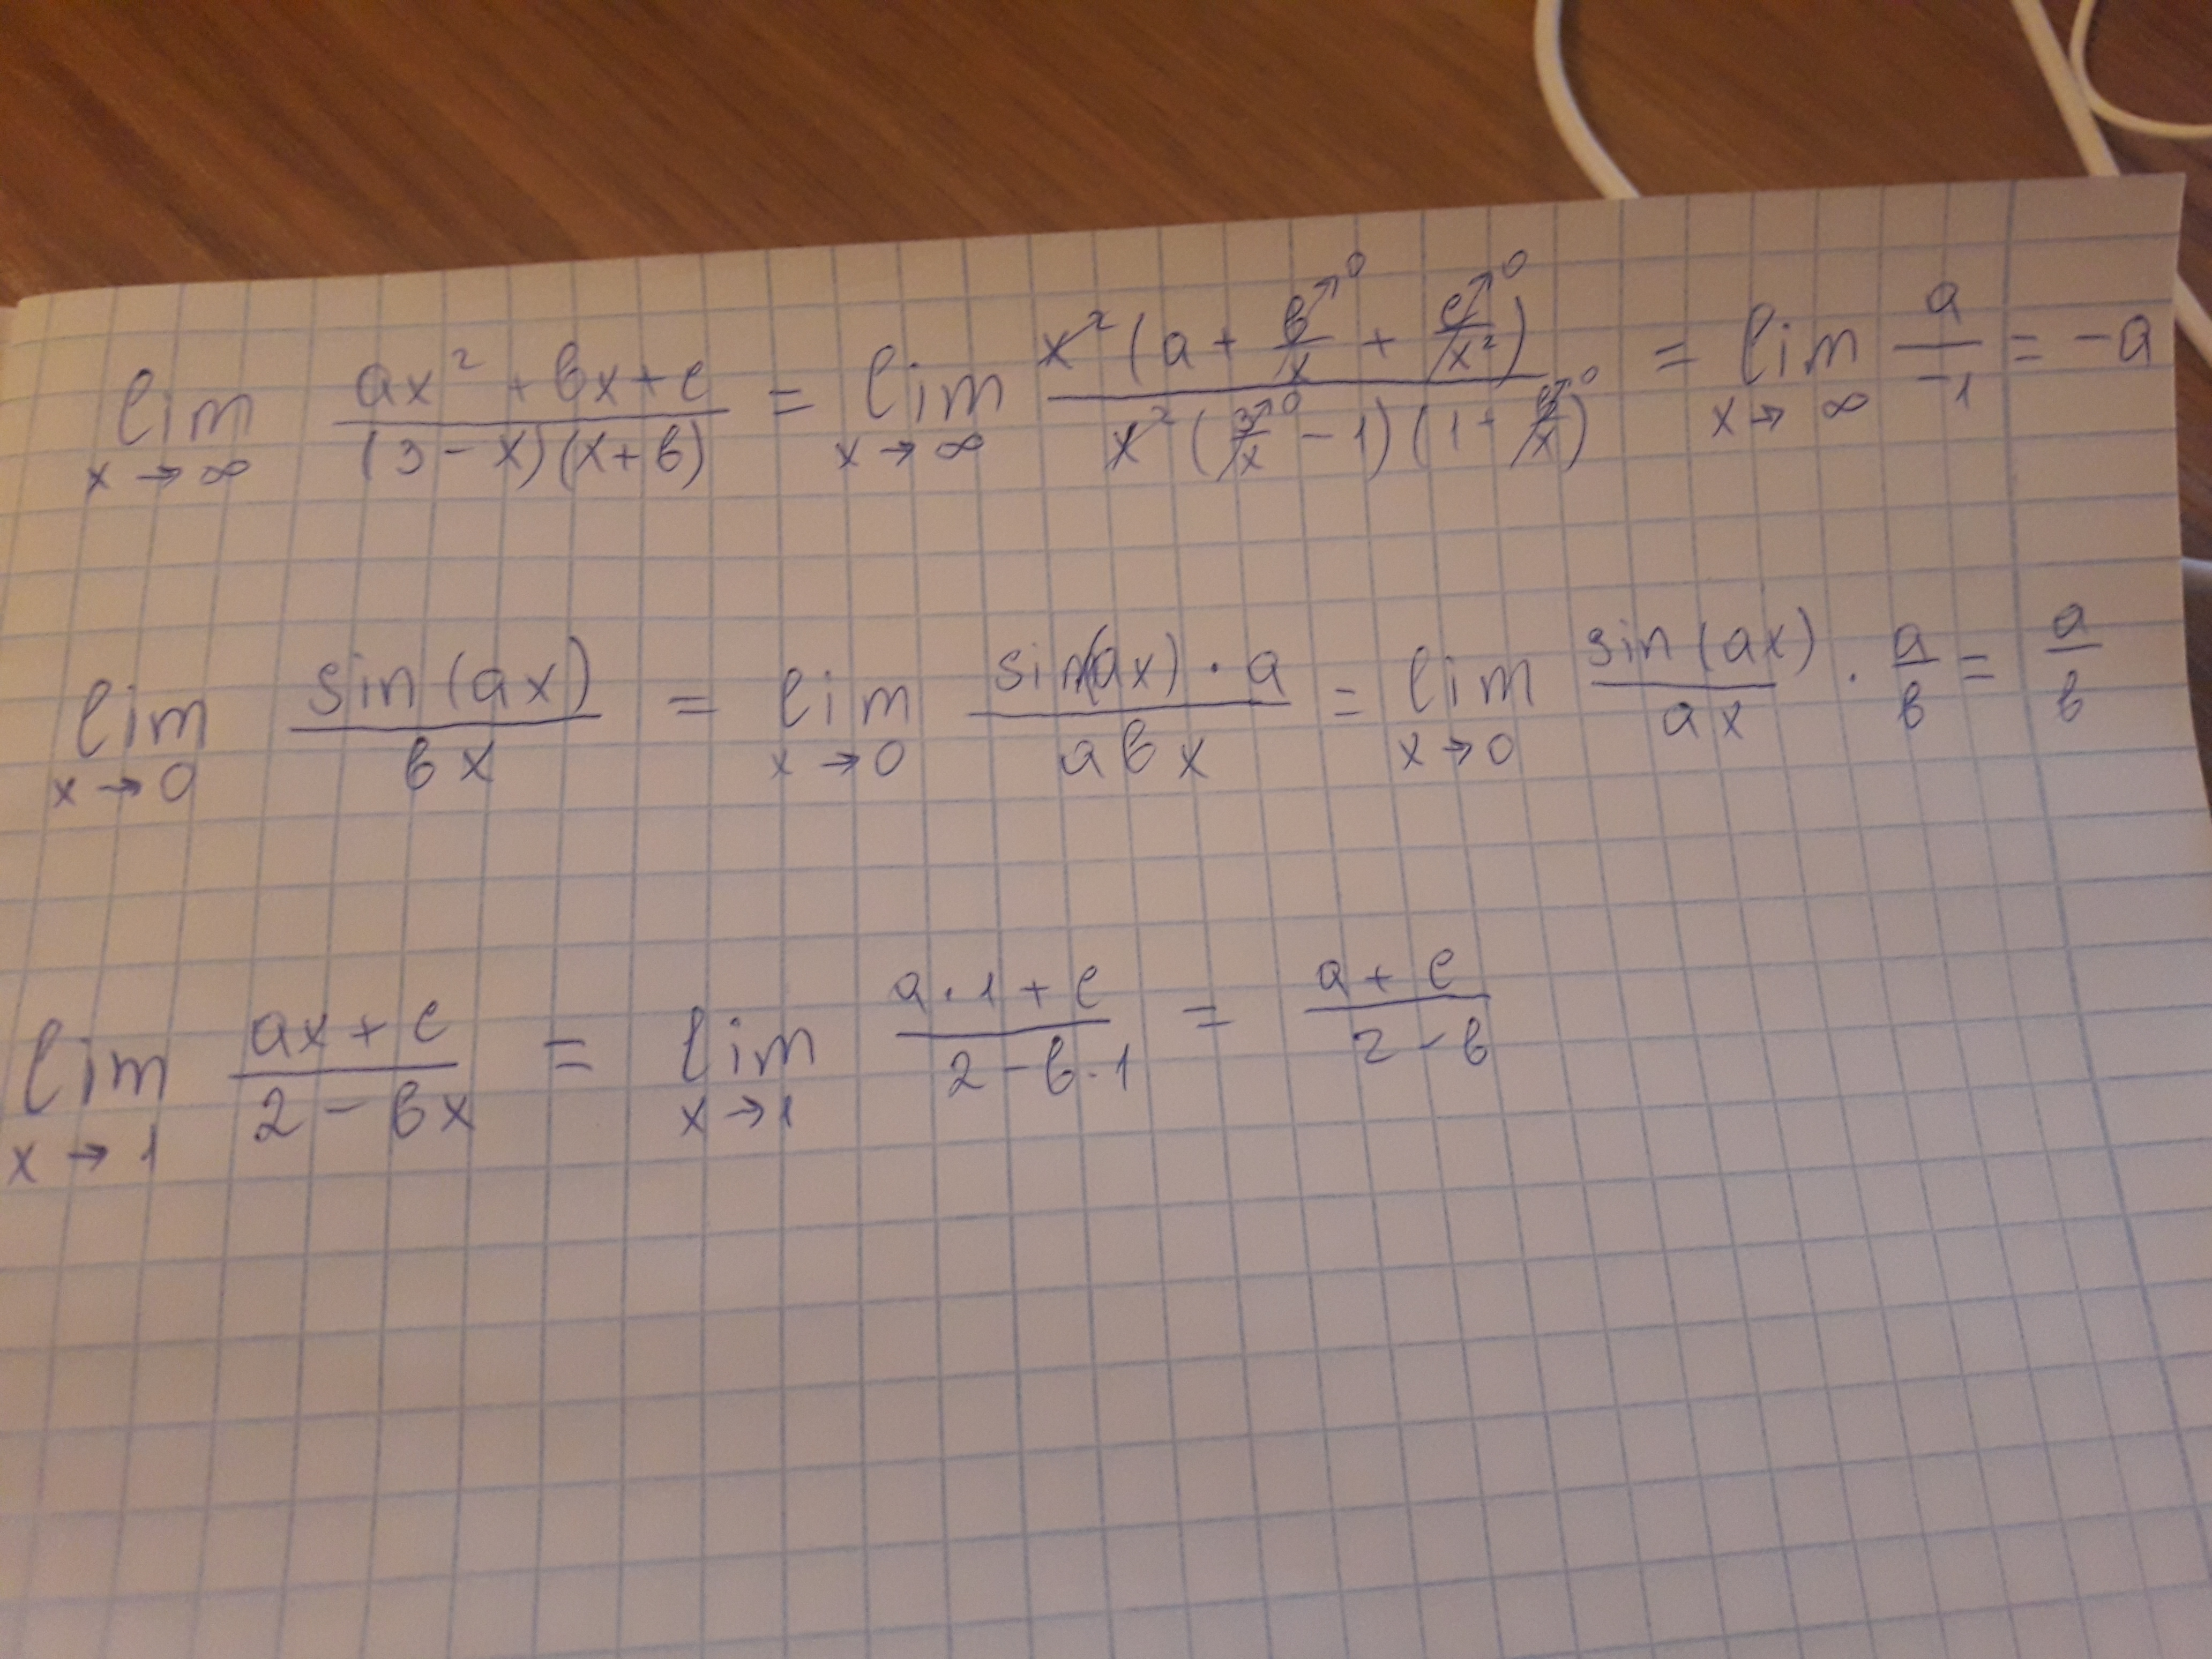 lim x→∞ (ax² + bx + c)/((3 − x)(x + b)) = lim x→∞ (x²(a + b/x↗0 + c/x²↗0))/(x²(3/x↗0 − 1)(1 + b/x↗0)) = lim x→∞ a/−1 = −a
lim x→0 sin(ax)/(bx) = lim x→0 (sin(ax) · a)/(abx) = lim x→0 sin(ax)/(ax) · a/b = a/b
lim x→1 (ax + c)/(2 − bx) = lim x→1 (a·1 + c)/(2 − b·1) = (a + c)/(2 − b)